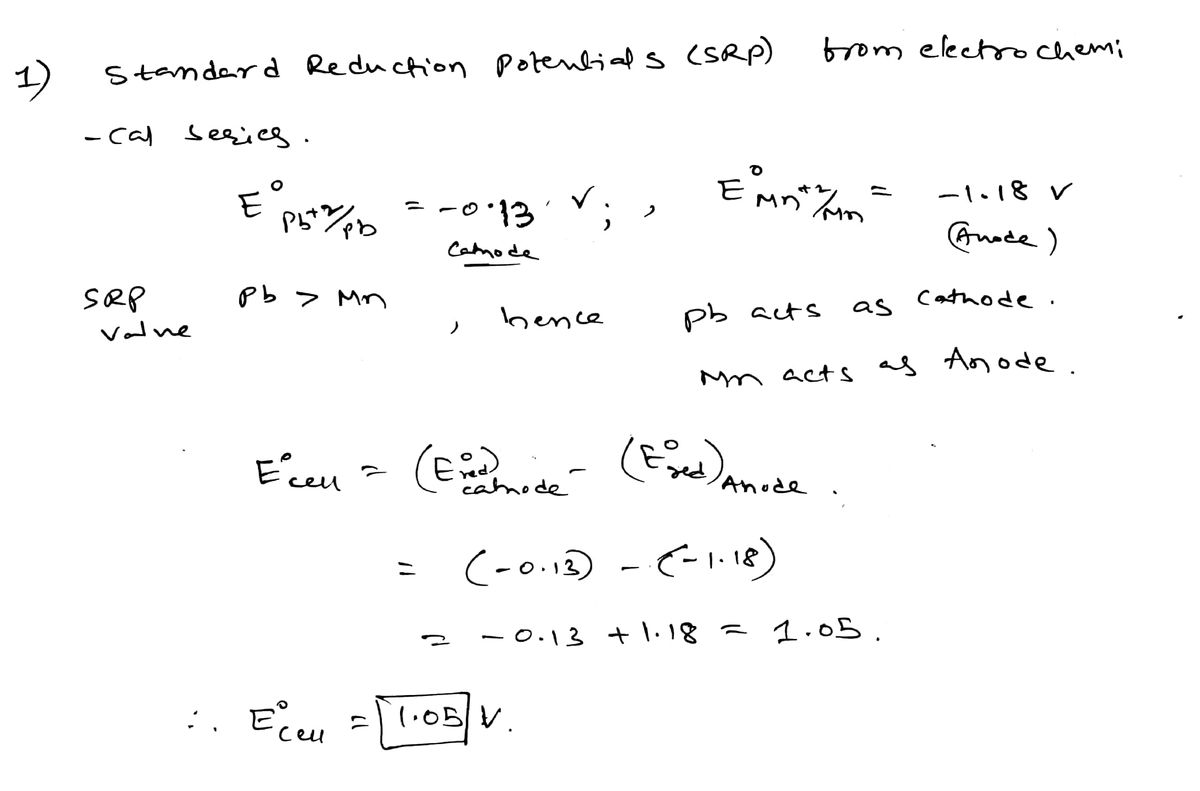 1) Standard Reduction Potentials (SRP) from electrochemi
-cal series.
E°Pb+2/Pb = -0.13 V; , E°Mn+2/Mn = -1.18 V
Cathode (Anode)
SRP value Pb > Mn , hence Pb acts as Cathode.
Mn acts as Anode.
E°cell = (E°red)cathode - (E°red)Anode.
= (-0.13) - (-1.18)
= -0.13 + 1.18 = 1.05.
∴ E°cell = 1.05 V.